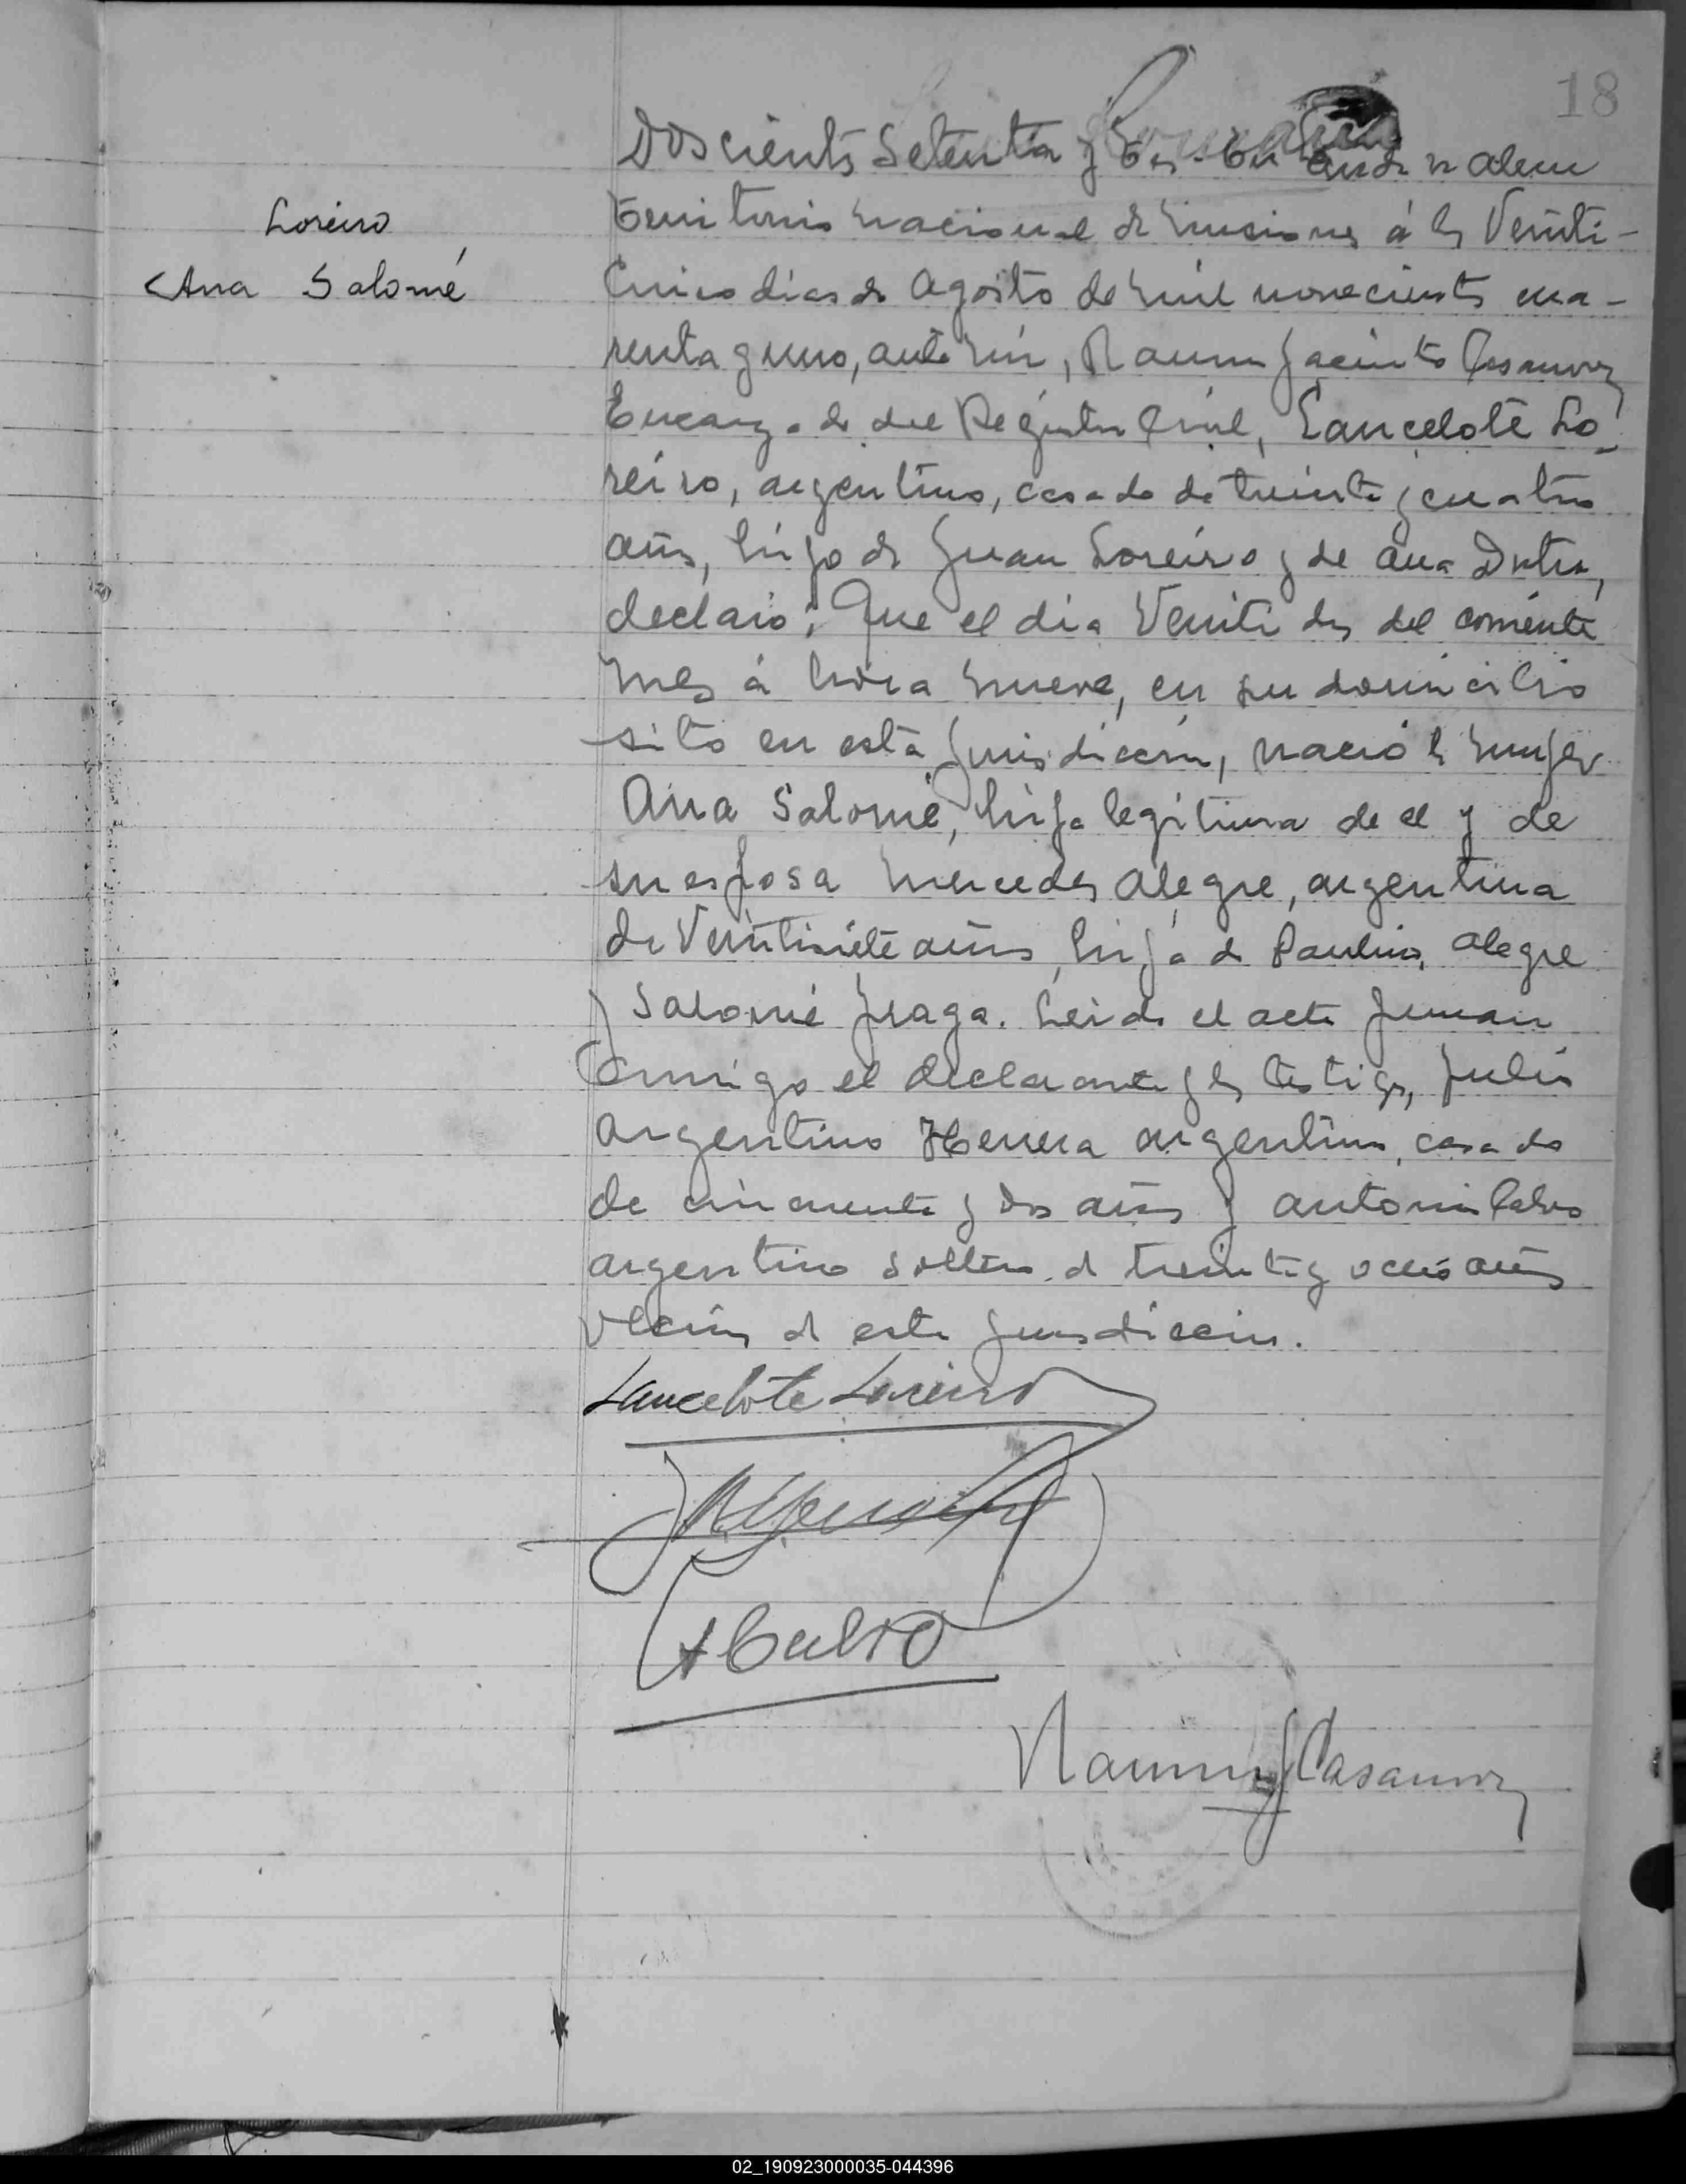 18
Loreiro
Ana Salomé
Doscientos Setenta y tres. En Leandro N Alem
Territorio nacional de Misiones á los Veinti-
Cinco dias de Agosto de mil novecientos cua-
renta y uno, ante mi, Ramon Jacinto Casanova
Encargado del Registro Civil, Lancelote Lo-
reiro, argentino, casado de treinta y cuatro
años, hijo de Juan Loreiro y de Ana Dutra,
declaró: Que el dia Veinti dos del corriente
mes á hora nueve, en su domicilio
sito en esta jurisdiccion, nació la mujer
Ana Salomé, hija legitima de el y de
su esposa Mercedes Alegre, argentina
de Veintisiete años, hija de Paulino Alegre
y Salomé Fraga. Leido el acta firman
Conmigo el declarante y los testigos, Julio
Argentino Herrera argentino, casado
de cincuenta y dos años y Antonio Calvo
argentino soltero de treinta y ocho años
vecinos de esta jurisdiccion.
Lancelote Loreiro
A Calvo
Ramon J Casanova
02_190923000035-044396